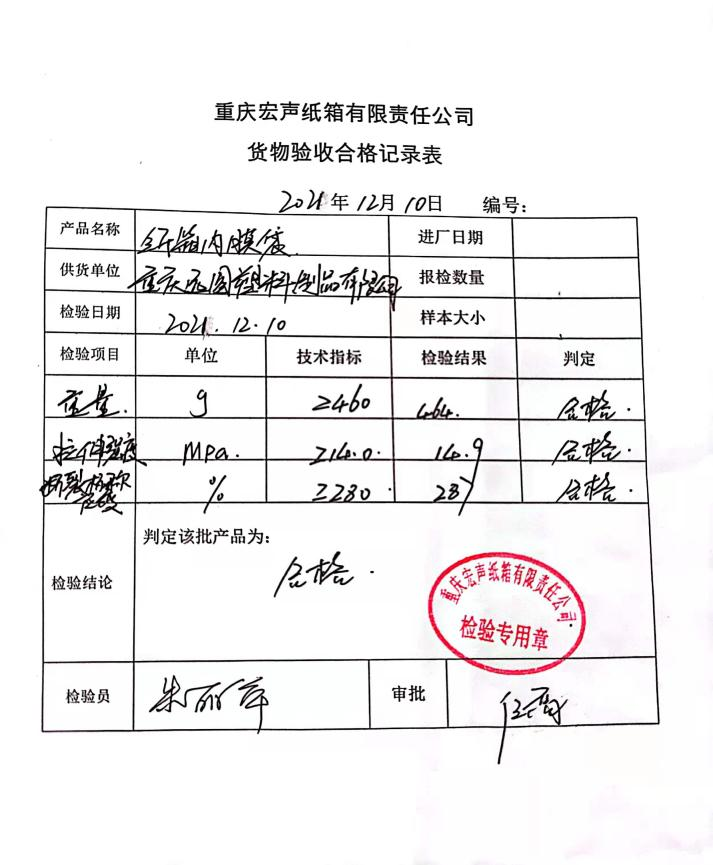 重庆宏声纸箱有限责任公司
货物验收合格记录表
2021年12月10日 编号:
产品名称 纸箱内膜袋. 进厂日期
供货单位 重庆 塑料制品有限公司 报检数量
检验日期 2021.12.10 样本大小
检验项目 单位 技术指标 检验结果 判定
克量. g ≥460 464. 合格.
拉伸强度 MPa. ≥14.0 14.9 合格.
断裂标称应变 % ≥280 287 合格.
判定该批产品为:
检验结论 合格.
重庆宏声纸箱有限责任公司
检验专用章
检验员 朱丽萍 审批